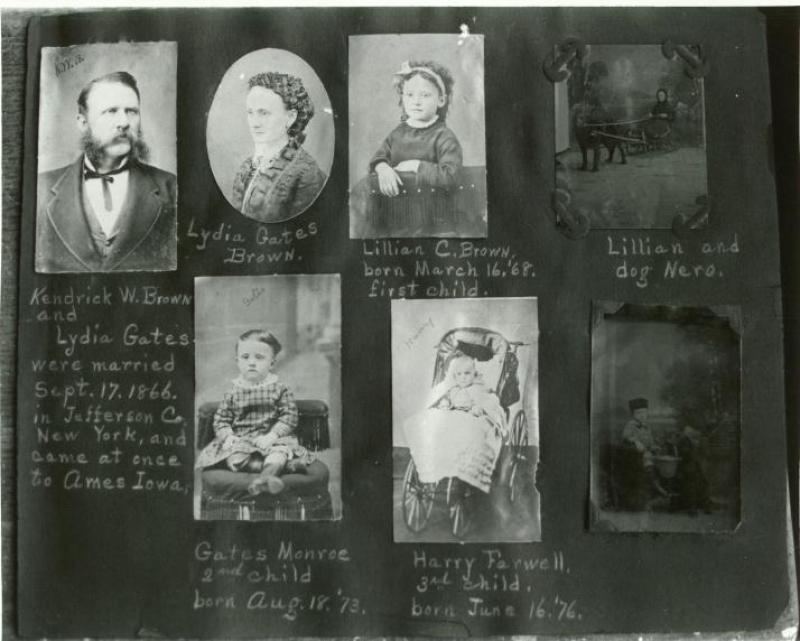 K.W.B.
Lydia Gates
Brown.
Lillian C. Brown,
born March 16, '68.
first child.
Lillian and
dog Nero.
Kendrick W. Brown
and
Lydia Gates
were married
Sept. 17. 1866.
in Jefferson Co.
New York, and
came at once
to Ames Iowa,
Gates
Harry
Gates Monroe
2nd child
born Aug. 18. '73.
Harry Farwell,
3rd child,
born June 16. '76.